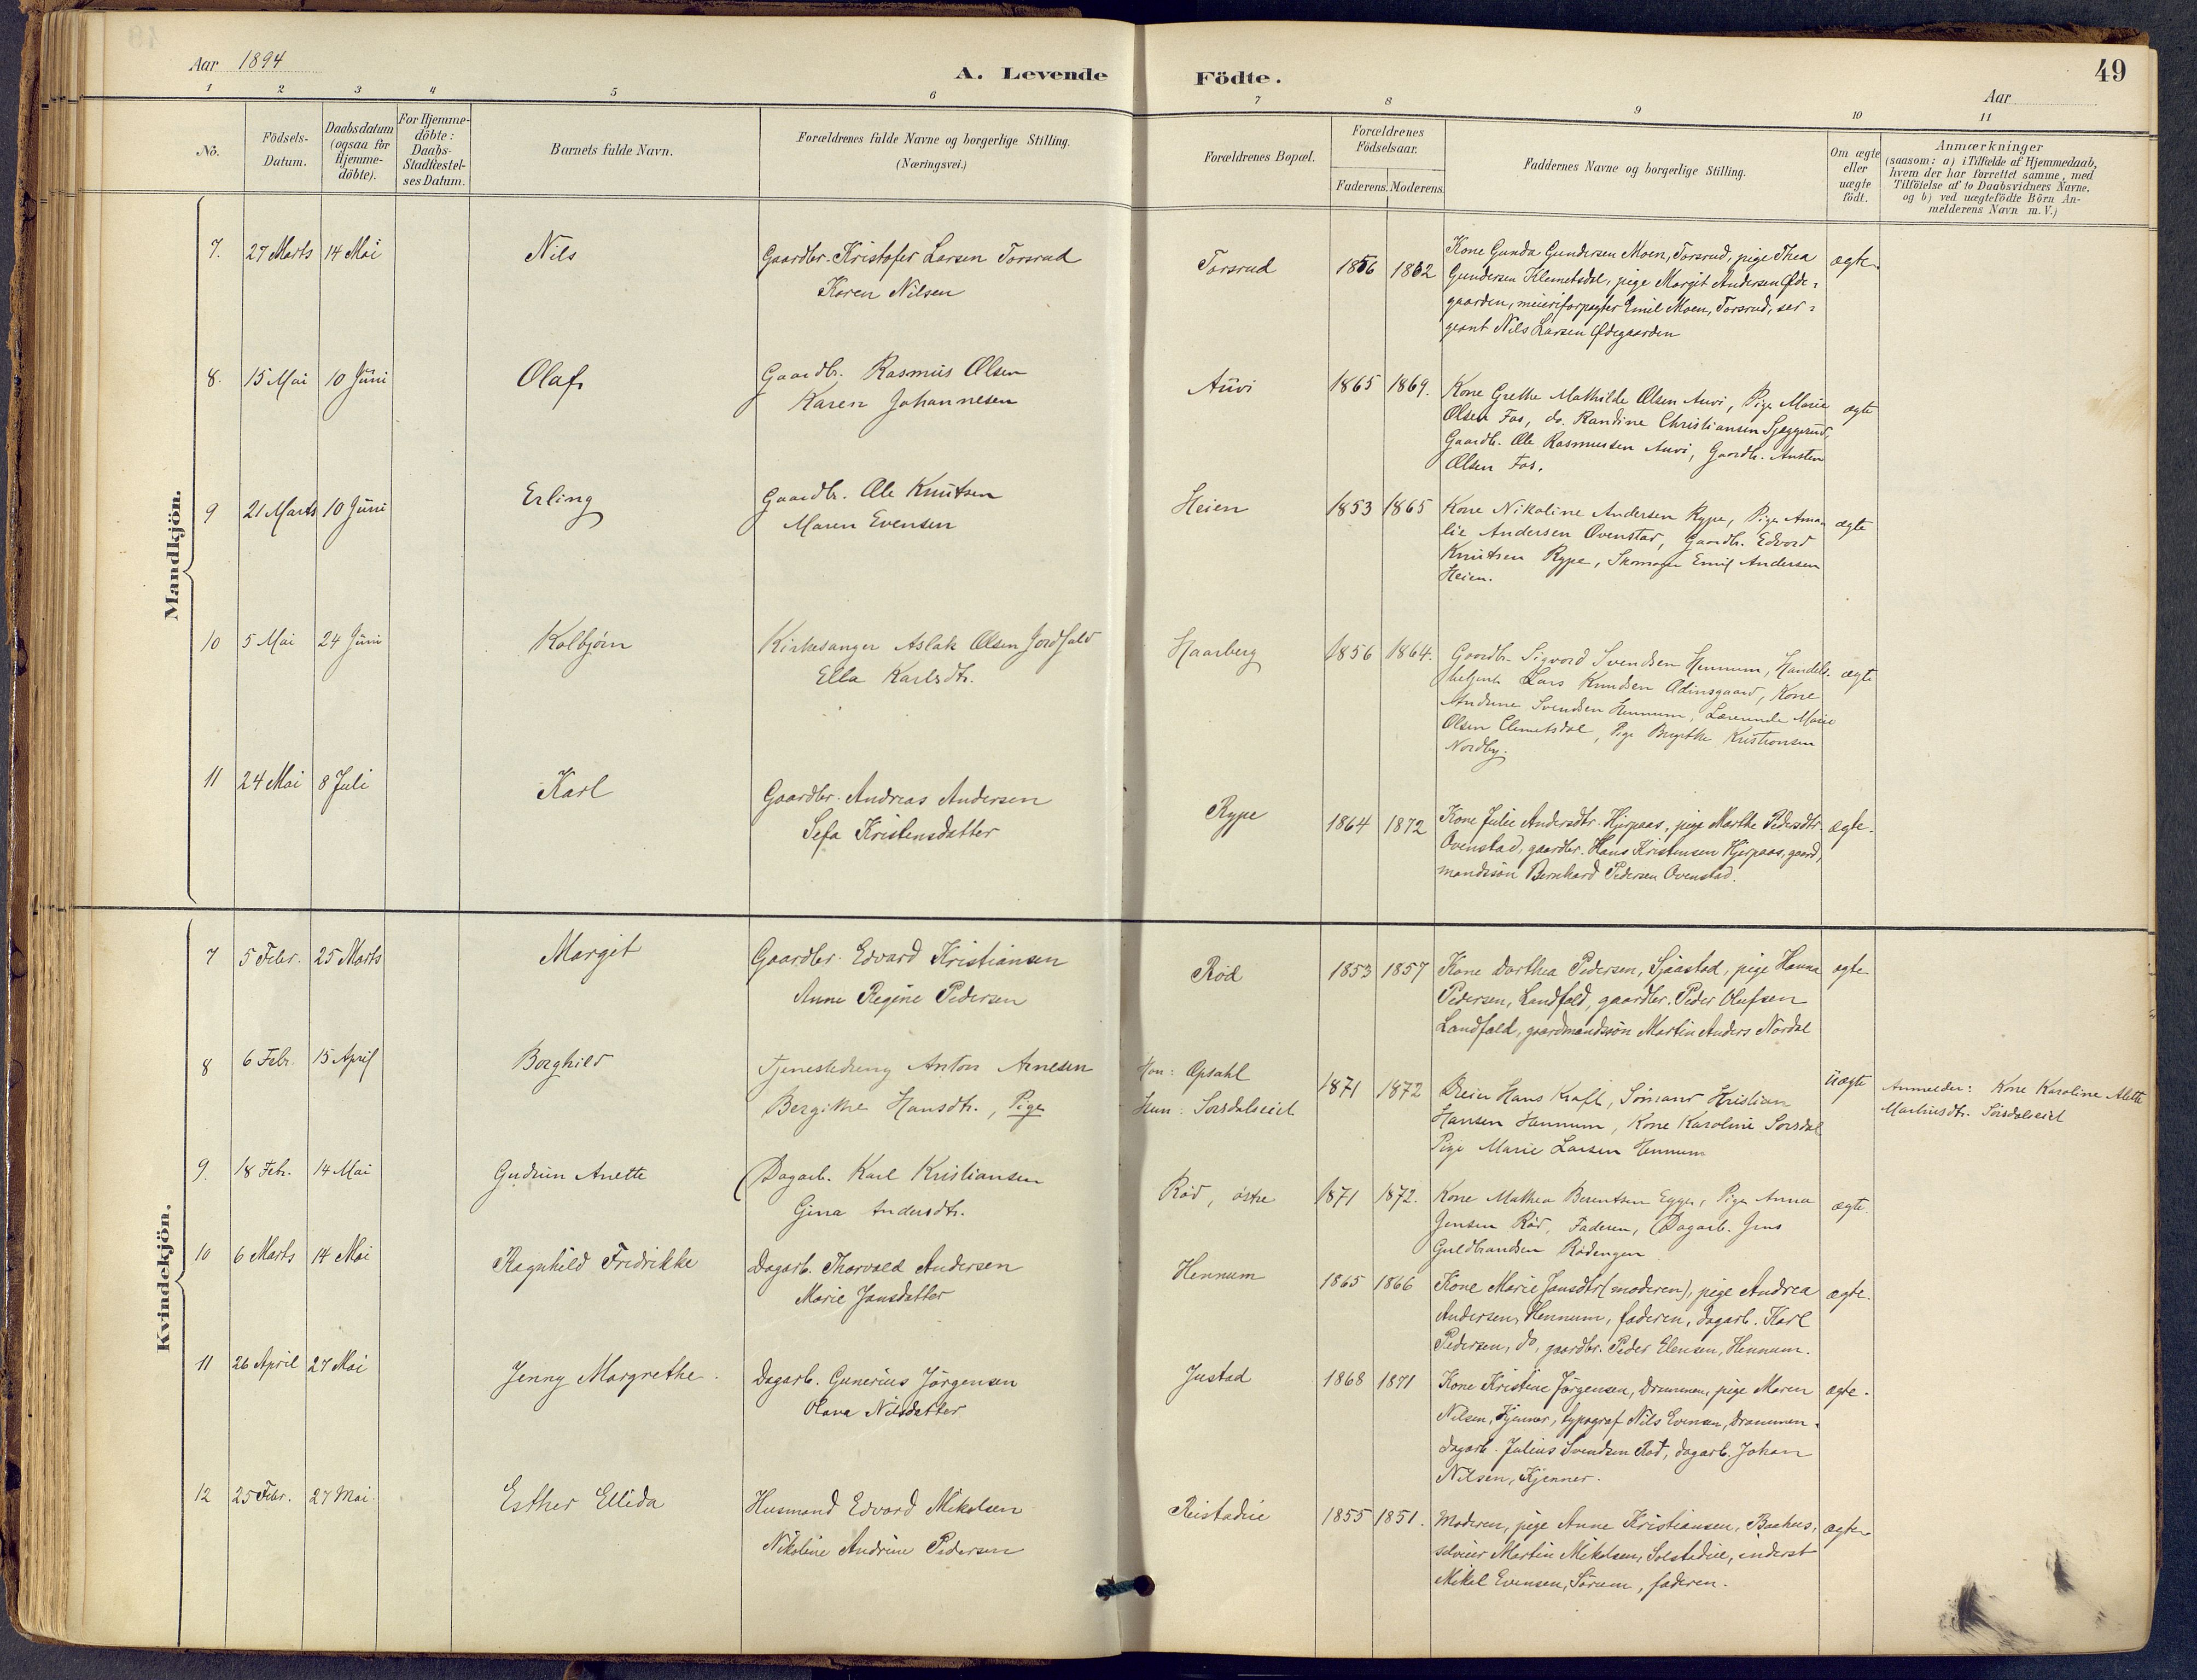 49
Aar 1894
A. Levende Födte.
Aar
1 2 3 4 5 6 7 8 9 10 11
No.
Födsels-
Datum.
Daabsdatum
(ogsaa for
Hjemme-
döbte).
For Hjemme-
döbte:
Daabs-
Stadfæstel-
ses Datum.
Barnets fulde Navn.
Forældrenes fulde Navne og borgerlige Stilling.
(Næringsvei.)
Forældrenes Bopæl.
Forældrenes
Födselsaar.
Faderens. Moderens.
Faddernes Navne og borgerlige Stilling.
Om ægte
eller
uægte
födt.
Anmærkninger
(saasom: a) i Tilfælde af Hjemmedaab,
hvem der har forrettet samme, med
Tilföielse af to Daabsvidners Navne,
og b) ved uægtefödte Börn An-
melderens Navn m. V.)
Mandkjön.
7. 27 Marts 14 Mai Nils
Gaardbr. Kristofer Larsen Torsrud
Karen Nilsen
Torsrud 1856 1862
Kone Gunda Gundersen Moen, Torsrud, pige Thea
Gundersen Klemetsdal, pige Margit Andersen Øde-
gaarden, meieriforpagter Emil Moen, Torsrud, ser-
geant Nils Larsen Ødegaarden
ægte.
8. 15 Mai 10 Juni Olaf
Gaardbr. Rasmus Olsen
Karen Johannesen
Auvi 1865 1869.
Kone Grethe Mathilde Olsen Auvi, Pige Marie
Olsen Fos, do. Randine Christiansen
Gaardb. Ole Rasmussen Auvi, Gaardb. Austen
Olsen Fos.
ægte
9 21 Marts 10 Juni Erling
Gaardb. Ole Knutsen
Maren Evensen
Heien 1853 1865
Kone Nikoline Andersen Rype, Pige Ama-
lie Andersen Ovenstad, Gaardb. Edvard
Knutsen Rype, Skomager Emil Andersen
Heien.
ægte
10 5 Mai 24 Juni Kolbjørn
Kirkesanger Aslak Olsen Jordfald
Ella Karlsdtr.
Haarberg 1856 1864.
Gaardbr. Sigvard Svendsen Hennum, Handels-
betjent Lars Knudsen Odinsgaard, Kone
Andrine Svendsen Hennum, Lærerinde Marie
Olsen Clemetsdal, Pige Birgithe Kristiansen
Nordby.
ægte
11 24 Mai 8 Juli Karl
Gaardbr. Andreas Andersen
Sefa Kristensdatter
Rype 1864 1872
Kone Julie Andersdtr. Hjerpaas, pige Marthe Pedersdtr.
Ovenstad, gaardbr. Hans Kristensen Hjerpaas, gaard-
mandssøn Bernhard Pedersen Ovenstad.
ægte.
Kvindekjön.
7 5 Febr. 25 Marts Margit
Gaardbr. Edvard Kristiansen
Anne Regine Pedersen
Rød 1853 1857
Kone Dorthea Pedersen, Sjaastad, pige Hanna
Pedersen, Landfald, gaardbr. Peder Olufsen
Landfald, gaardmandssøn Martin Anders Nordal
ægte
8 6 Febr. 15 April Borghild
Tjenestedreng Anton Arnesen
Bergithe Hansdtr., Pige
Han: Opsahl
Hun: Sørsdalseiet
1871 1872
Dreier Hans Kraft, Sømand Kristian
Hansen Hennum, Kone Karoline Sørsdal
Pige Marie Larsen Hennum
uægte
Anmelder: Kone Karoline Alette
Marhusdtr. Sørsdalseiet
9. 18 Feb. 14 Mai Gudrun Anette
Dagarb. Karl Kristiansen
Gina Andersdtr.
Rød, østre 1871 1872.
Kone Mathea Berentsen Egge, Pige Anna
Jensen Rød, Faderen, Dagarb. Jens
Guldbrandsen Rødengen
ægte.
10 6 Marts 14 Mai Ragnhild Fredrikke
Dagarb. Thorvald Andersen
Marie Jansdatter
Hennum 1865 1866
Kone Marie Jansdtr (moderen), pige Andrea
Andersen, Hennum, faderen, dagarb. Karl
Pedersen, do, gaardbr. Peder Elensen, Hennum.
ægte.
11 26 April 27 Mai Jenny Margrethe.
Dagarb. Gunerius Jørgensen
Olava Nilsdatter
Justad 1868 1871
Kone Kristine Jørgensen, Drammen, pige Maren
Nilsen, Kjenner, typograf Nils Evensen, Drammen,
dagarb. Julius Svendsen Rød, dagarb. Johan
Nilsen, Kjenner.
ægte.
12 25 Febr. 27 Mai Esther Ellida
Husmand Edvard Mikelsen
Nikoline Andrine Pedersen
Reistadie 1855 1851.
Moderen, pige Anne Kristiansen, Baahus,
selveier Martin Mikelsen, Solstadeie, inderst
Mikel Evensen, Sørum, faderen.
ægte